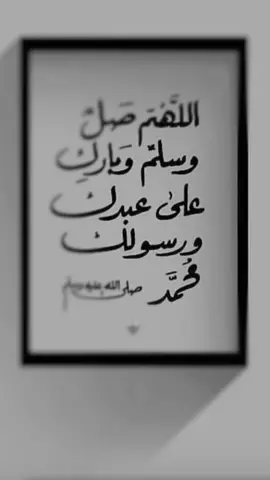 اللَّهُمَ صَلِّ
وسلمّ وَبارِك
علىٰ عبدك
ورسولك
مُحمَّد صلى الله عليه وسلم